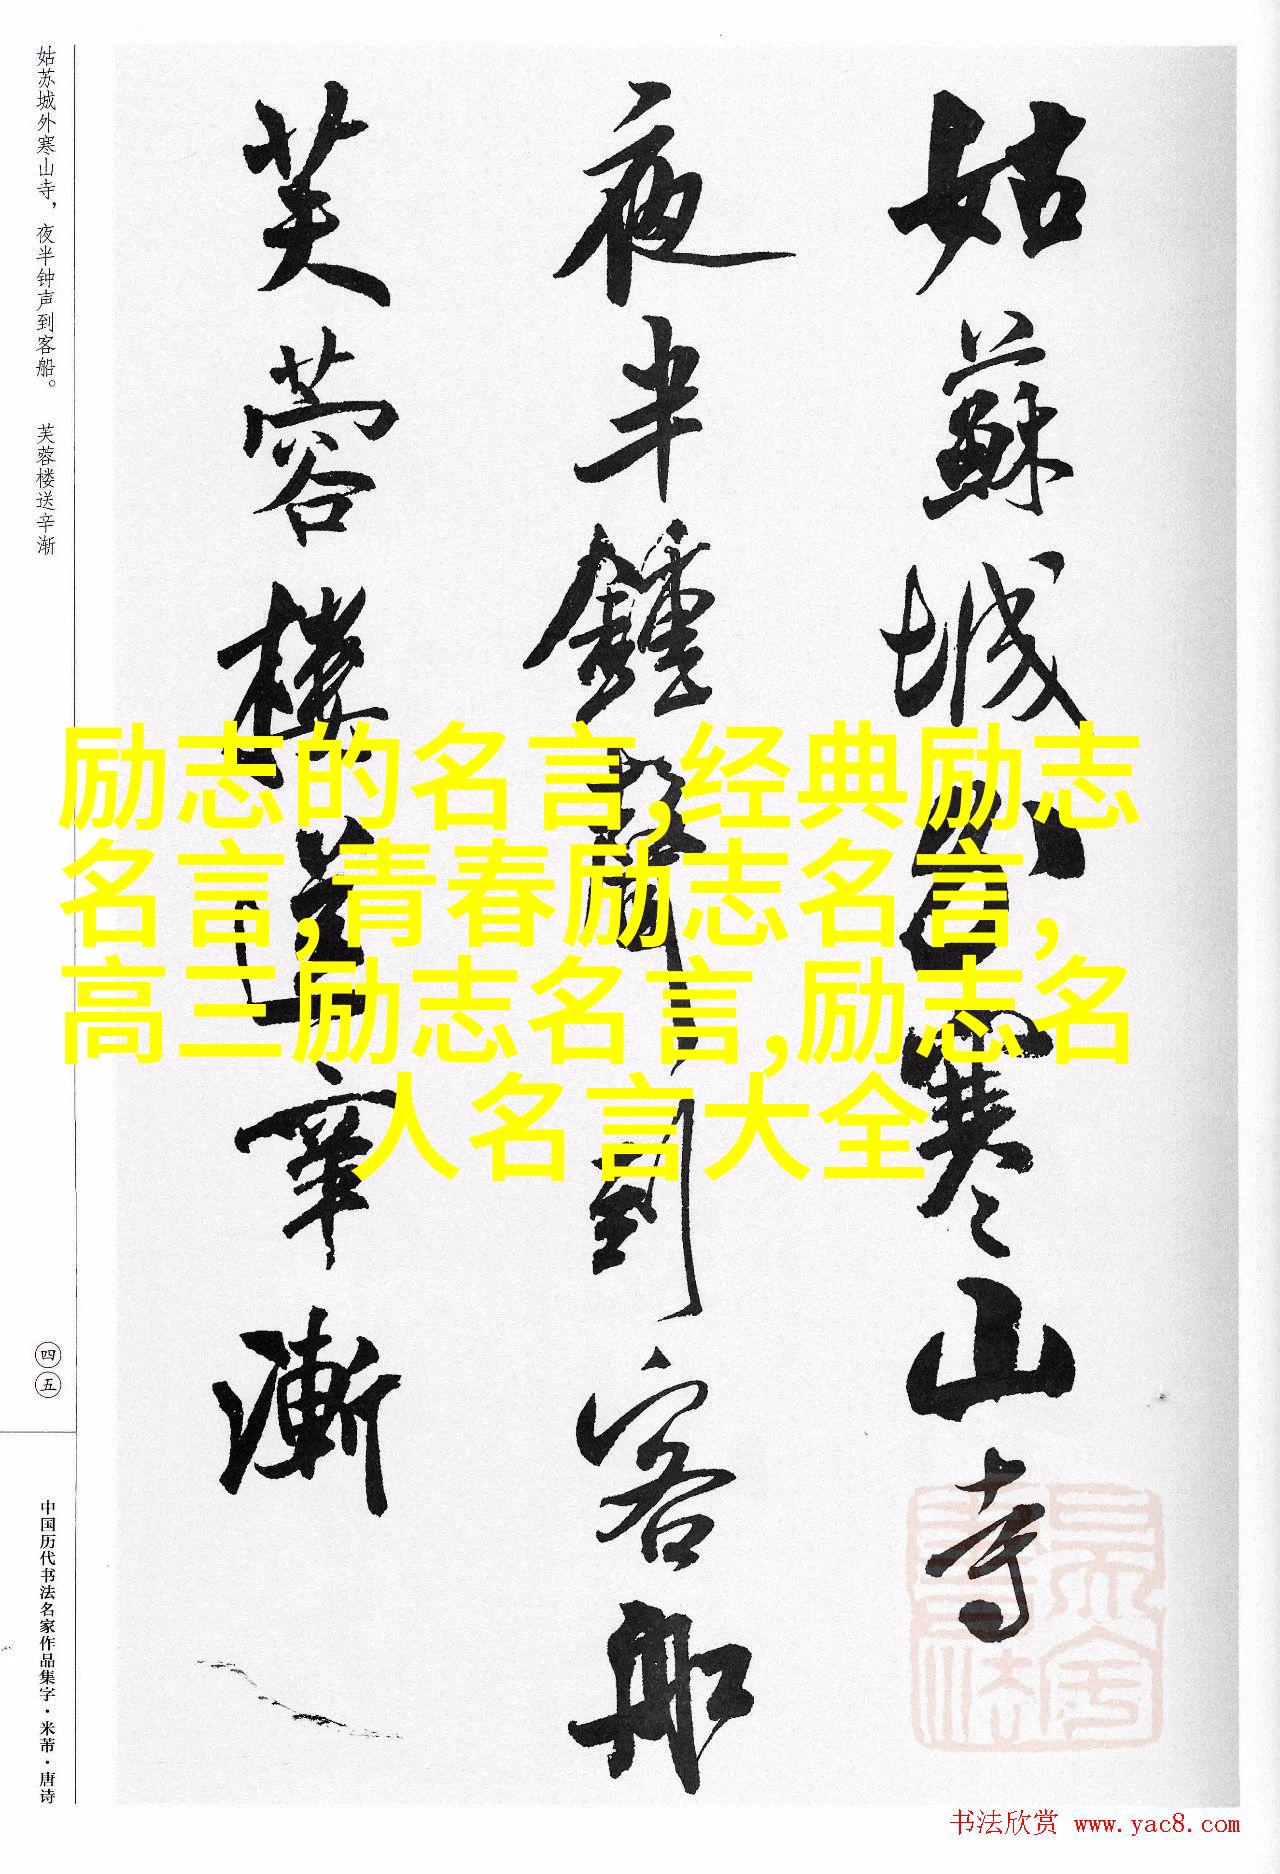 姑苏城外寒山寺，夜半钟声到客船。 芙蓉楼送辛渐
姑蘇城外寒山寺
夜半鐘聲到客船
芙蓉樓送辛漸
励志的名言,经典励志
名言,青春励志名言,
高三励志名言,励志名
人名言大全
四五
中国历代书法名家作品集字·米芾·唐诗
书法欣赏 www.yac8.com